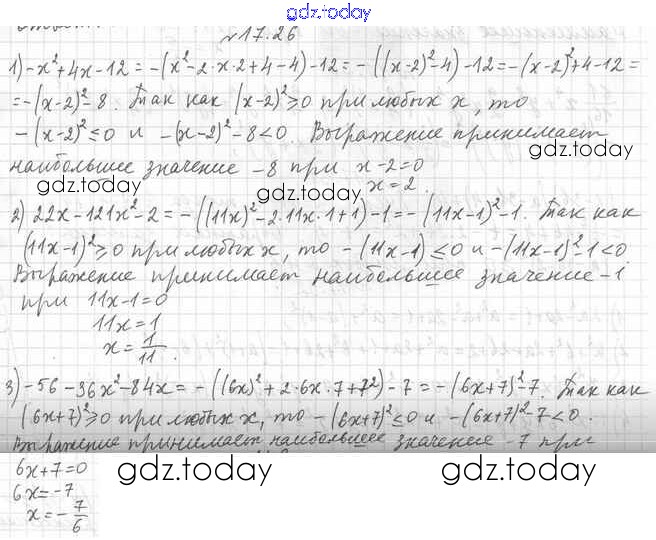 gdz.today
№17.26
1) -x²+4x-12 = -(x²-2·x·2+4-4)-12 = -((x-2)²-4)-12 = -(x-2)²+4-12 =
= -(x-2)²-8. Так как (x-2)²≥0 при любых x, то
-(x-2)²≤0 и -(x-2)²-8<0. Выражение принимает
gdz.today
наибольшее значение -8 при x-2=0
gdz.today gdz.today
x=2.
2) 22x-121x²-2 = -((11x)²-2·11x·1+1)-1 = -(11x-1)²-1. Так как
(11x-1)²≥0 при любых x, то -(11x-1)≤0 и -(11x-1)²-1<0.
Выражение принимает наибольшее значение -1
при 11x-1=0
11x=1
x=1/11.
3) -56-36x²-84x = -((6x)²+2·6x·7+7²)-7 = -(6x+7)²-7. Так как
(6x+7)²≥0 при любых x, то -(6x+7)²≤0 и -(6x+7)²-7<0.
Выражение принимает наибольшее значение -7 при
6x+7=0
gdz.today gdz.today
6x=-7
x=-7/6
gdz.today